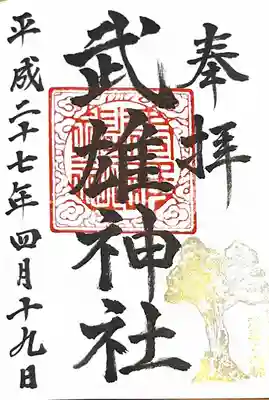 奉拝
武雄神社
平成二十七年四月十九日